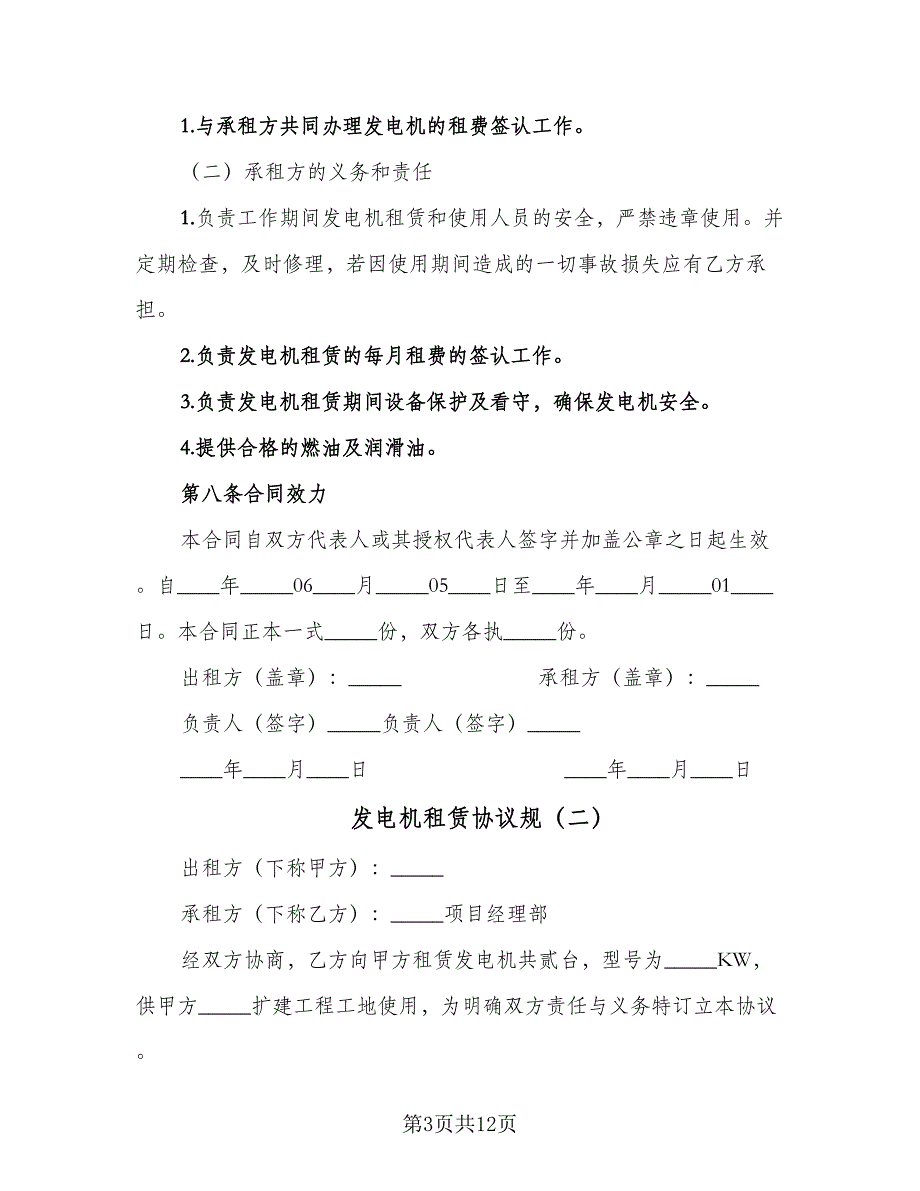 1.与承租方共同办理发电机的租费签认工作。
（二）承租方的义务和责任
1.负责工作期间发电机租赁和使用人员的安全，严禁违章使用。并
定期检查，及时修理，若因使用期间造成的一切事故损失应有乙方承
担。
2.负责发电机租赁的每月租费的签认工作。
3.负责发电机租赁期间设备保护及看守，确保发电机安全。
4.提供合格的燃油及润滑油。
第八条合同效力
本合同自双方代表人或其授权代表人签字并加盖公章之日起生效
。自____年_____06____月_____05____日至____年____月_____01____
日。本合同正本一式_____份，双方各执_____份。
出租方（盖章）：_____ 承租方（盖章）：_____
负责人（签字）_____负责人（签字）_____
____年____月____日 ____年____月____日
发电机租赁协议规（二）
出租方（下称甲方）：_____
承租方（下称乙方）：_____项目经理部
经双方协商，乙方向甲方租赁发电机共贰台，型号为_____KW，
供甲方_____扩建工程工地使用，为明确双方责任与义务特订立本协议
。
第3页共12页